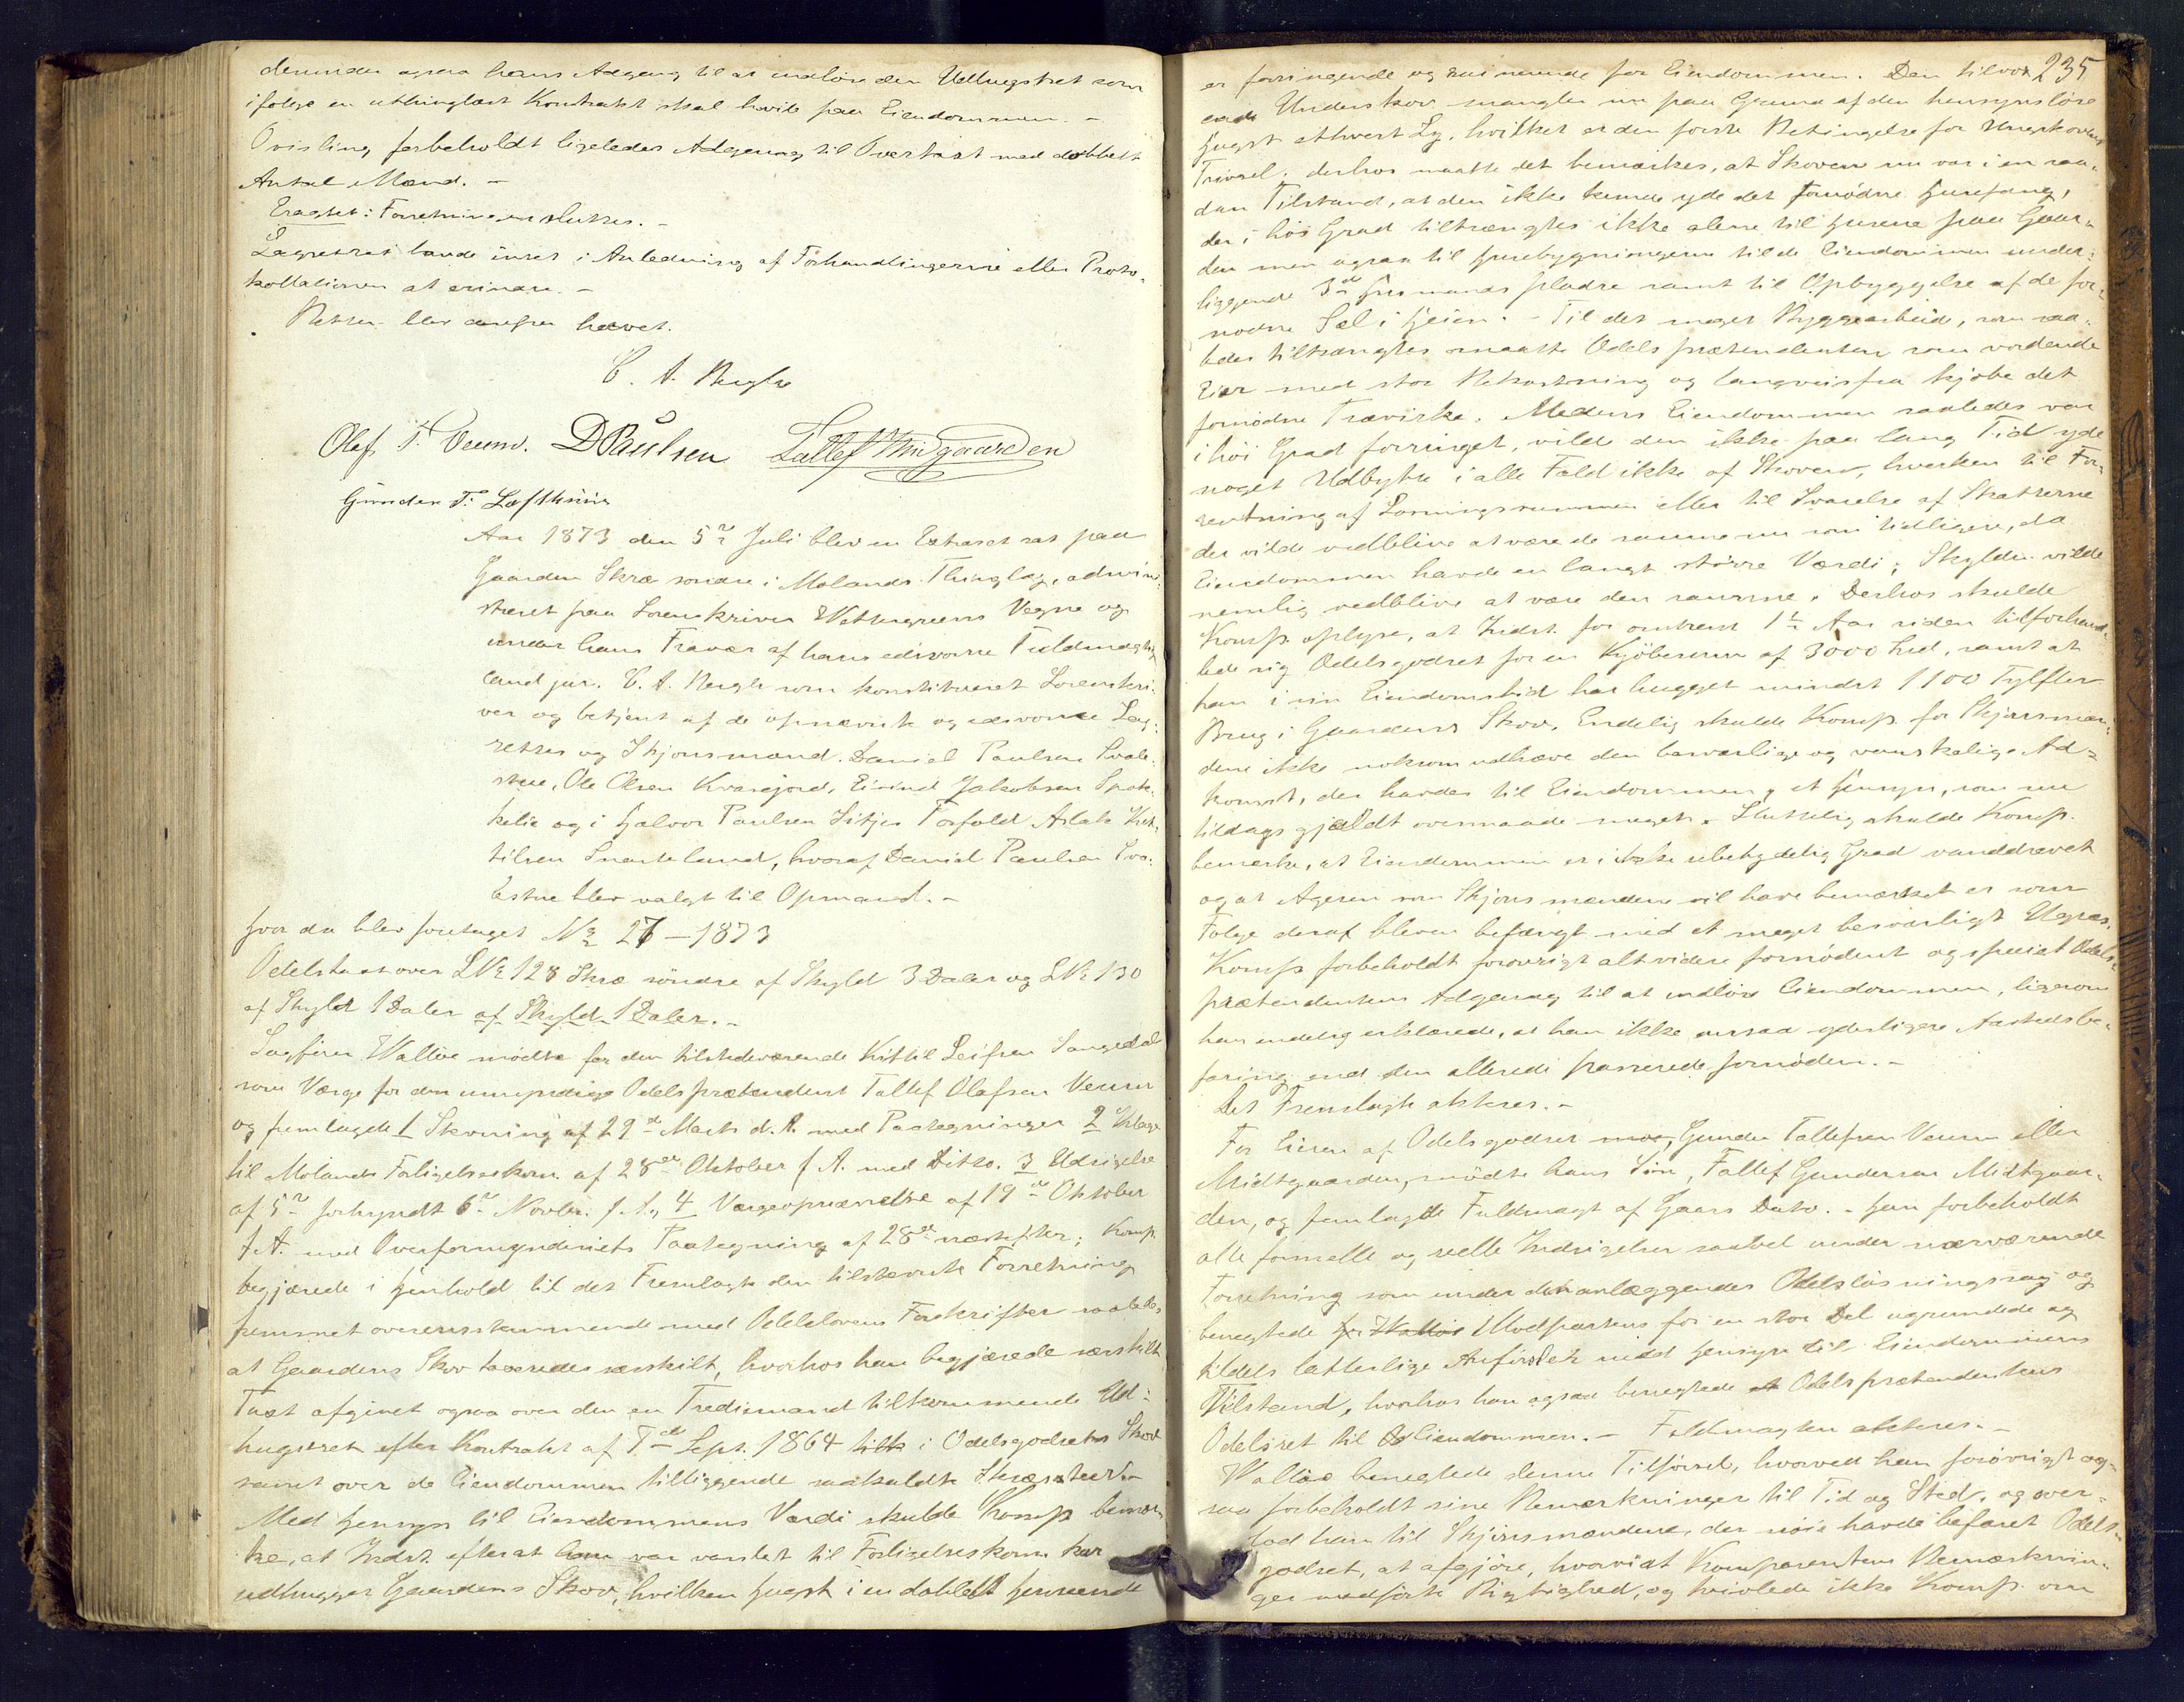 derunder ogsaa hans Adgang til at indløse den Udhugstret som
ifølge en uthinglæst Kontrakt skal hvile paa Eiendommen. –
Qvisling forbeholdt ligeledes Adgang til Overtaxt med dobbelt
Antal Mænd. –
Eragtet: Forretningen sluttes. –
Lagrettet havde intet i Anledning af Forhandlingerne eller Proto-
kollationen at erindre. –
Retten blev derefter hævet.
C. A. Bugge
Olaf T. Veum. D Paulsen Tallef Midgaarden
Gunder T. Lofthuus
Aar 1873 den 5te Juli blev en Extraret sat paa
Gaarden Skræ søndre i Molands Thinglag, admini-
streret paa Sorenskriver Wettergreens Vegne og
under hans Fravær af hans edsvorne Fuldmægtig
cand jur. C. A. Bugge som konstitueret Sorenskri-
ver og betjent af de opnævnte og edsvorne Lag-
rettes og Skjønsmænd. Daniel Paulsen Svale-
stue, Ole Olsen Kvasejord, Eivind Jakobsen Spok-
kelie og i Halvor Paulsen Sitjes Forfald Aslak Ket-
tilsen Snarteland, hvoraf Daniel Paulsen Sva-
lestue blev valgt til Opmand. –
Hvor da blev foretaget No 27 – 1873
Odelstaxt over LNo 128 Skræ søndre af Skyld 3 Daler og LNo 130
af Skyld 1 Daler af Skyld 1 Daler. –
Sagfører Walløe mødte for den tilstedeværende Kittil Leifsen Saugedal
som Værge for den umyndige Odelsprætendent Tallef Olafsen Veum
og fremlagde 1 Stevning af 29de Marts d. A. med Paategninger 2 Klage
til Molands Forligelseskom. af 28de Oktober f. A. med Ditto. 3 Udsigelse
af 5te forkyndt 6te Novbr. f. A., 4 Værgeopnævnelse af 19de Oktober
f. A. med Overformynderiets Paategning af 28de næstefter; Komp.
begjærede i Henhold til det Fremlagte den tilstevnte Forretning
fremmet overensstemmende med Odelslovens Forskrifter saaledes
at Gaardens Skov taxeredes særskilt, hvorhos han begjærede særskilt
Taxt afgivet ogsaa over den en Trediemand tilkommende Ud-
hugstret efter Kontrakt af 7de Sept. 1864 i Odelsgodsets Skov
samt over de Eiendommen tilliggende saakaldte
Med Hensyn til Eiendommens Værdi skulde Komp. bemær-
ke, at Indst. efterat han var varslet til Forligelseskom. har
udhugget Gaardens Skov, hvilken Hugst i en dobbelt Henseende
235
er forringende og ruinerende for Eiendommen. Den tilvox-
ende Underskov mangler nu paa Grund af den hensynsløse
Hugst ethvert Ly, hvilket er den første Betingelse for Ungskovens
Trivsel; derhos maatte det bemærkes, at Skoven nu var i en saa-
dan Tilstand, at den ikke kunde yde det fornødne Husefang,
der i høi Grad tiltrængtes ikke alene til Husene paa Gaar-
den men ogsaa til Husebygningerne til de Eiendommen under-
liggende 3de Husmands pladse samt til Opbyggelse af de for-
nødne Sel i Heien. – Til det meget Byggearbeide, som saa-
ledes tiltrængtes maatte Odelsprætendenten som vordende
Eier med stor Bekostning og langveisfra kjøbe det
fornødne Trævirke. Medens Eiendommen saaledes var
i høi Grad forringet, vilde den ikke paa lang Tid yde
noget Udbytte i alle Fald ikke af Skoven, hverken til For-
rentning af Løsningssummen eller til Svarelse af Skatterne
der vilde vedblive at være de samme nu som tidligere, da
Eiendommen havde en langt større Værdi; Skylden vilde
nemlig vedblive at være den samme. Derhos skulde
Komp. oplyse, at Indst. for omtrent 1½ Aar siden tilforhand-
lede sig Odelsgodset for en Kjøbesum af 3000 Spd, samt at
han i sin Eiendomstid har hugget mindst 1100 Tylfter
Brug i Gaardens Skov. Endelig skulde Komp. for Skjønsmæn-
dene ikke noksom udhæve den besværlige og vanskelige Ad-
komst, der havdes til Eiendommen, et Hensyn, som nu
tildags gjældt overmaade meget. Sluttelig skulde Komp.
bemærke, at Eiendommen er i ikke ubetydelig Grad vanddrevet
og at Ageren som Skjønsmændene vil have bemærket er som
Følge deraf bleven befængt med et meget besværligt Ugræs.
Komp. forbeholdt forøvrigt alt videre fornødent og specielt Odels-
prætendentens Adgang til at indløse Eiendommen, ligesom
han endelig erklærede, at han ikke ansaa yderligere Aastedsbe-
faring end den allerede passerede fornøden. –
Det Fremlagte akteres. –
For Eieren af Odelsgodset Gunder Tallefsen Veum eller
Midtgaarden, mødte hans Søn, Tallef Gundersen Midtgaar-
den, og fremlagde Fuldmagt af Gaars Dato. – Han forbeholdt
alle formelle og reelle Indsigelser saavel under nærværende
Forretning som under den anlæggendes Odelsløsningssag og
benegtede Modpartens for en stor Del ugrundede og
tildels latterlige Anførsler med Hensyn til Eiendommens
Tilstand, hvorhos han ogsaa benegtede Odelsprætendentens
Odelsret til Eiendommen. – Fuldmagten akteres. –
Walløe benegtede denne Tilførsel, hvorved han forøvrigt og-
saa forbeholdt sine Bemærkninger til Tid og Sted, og over-
lod han til Skjønsmændene, der nøie havde befaret Odels-
godset, at afgjøre, hvorvidt Komparentens Bemærknin-
ger medførte Rigtighed, og tvivlede ikke Komp. om